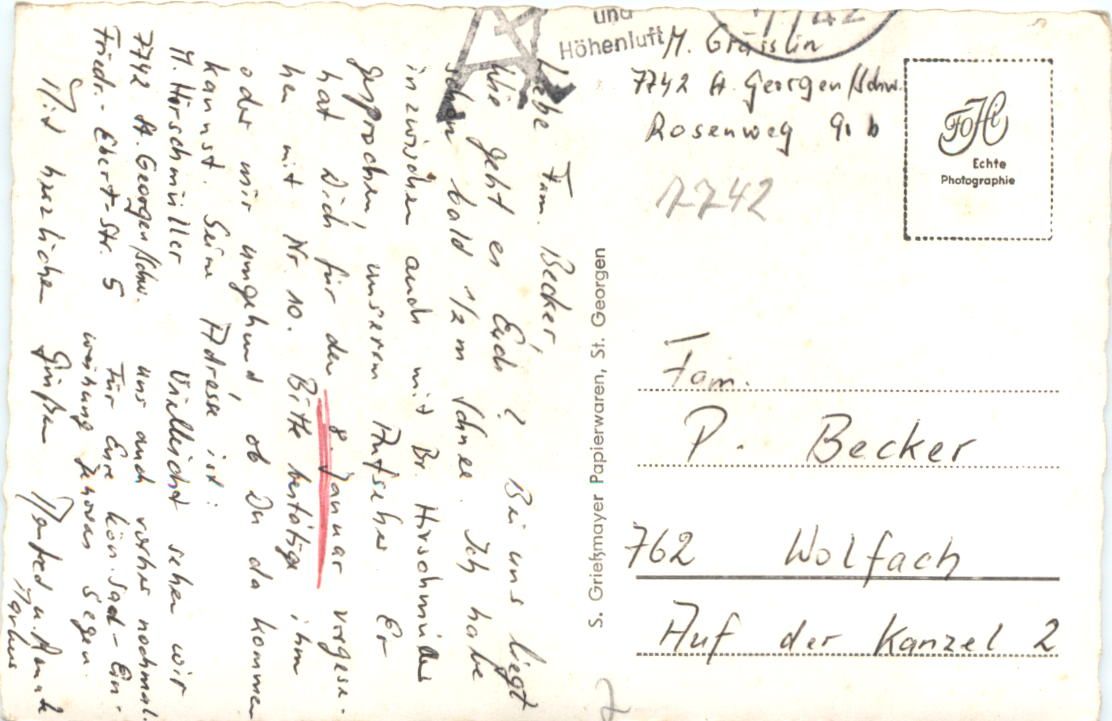 und
Höhenluft
7742
M. Grässlin
7742 St. Georgen/Schw.
Rosenweg 9 b
7742
FOHC
Echte
Photographie
Fam.
P. Becker
762 Wolfach
Auf der Kanzel 2
S. Grießmayer Papierwaren, St. Georgen
Liebe Fam. Becker!
Wie geht es Euch? Bei uns liegt
schon bald 1/2 m Schnee. Ich habe
inzwischen auch mit Br. Hirschmüller
gesprochen, unserem Aufseher. Er
hat Dich für den 8. Januar vorgese-
hen mit Nr. 10. Bitte bestätige ihm
oder mir umgehend, ob Du da kommen
kannst. Seine Adresse ist:
M. Hirschmüller Vielleicht sehen wir
7742 St. Georgen/Schw. uns auch vorher nochmal.
Friedr.-Ebert-Str. 5 Für Eure Kön.saal-Ein-
weihung Jehovas Segen.
Mit herzlichen Grüßen